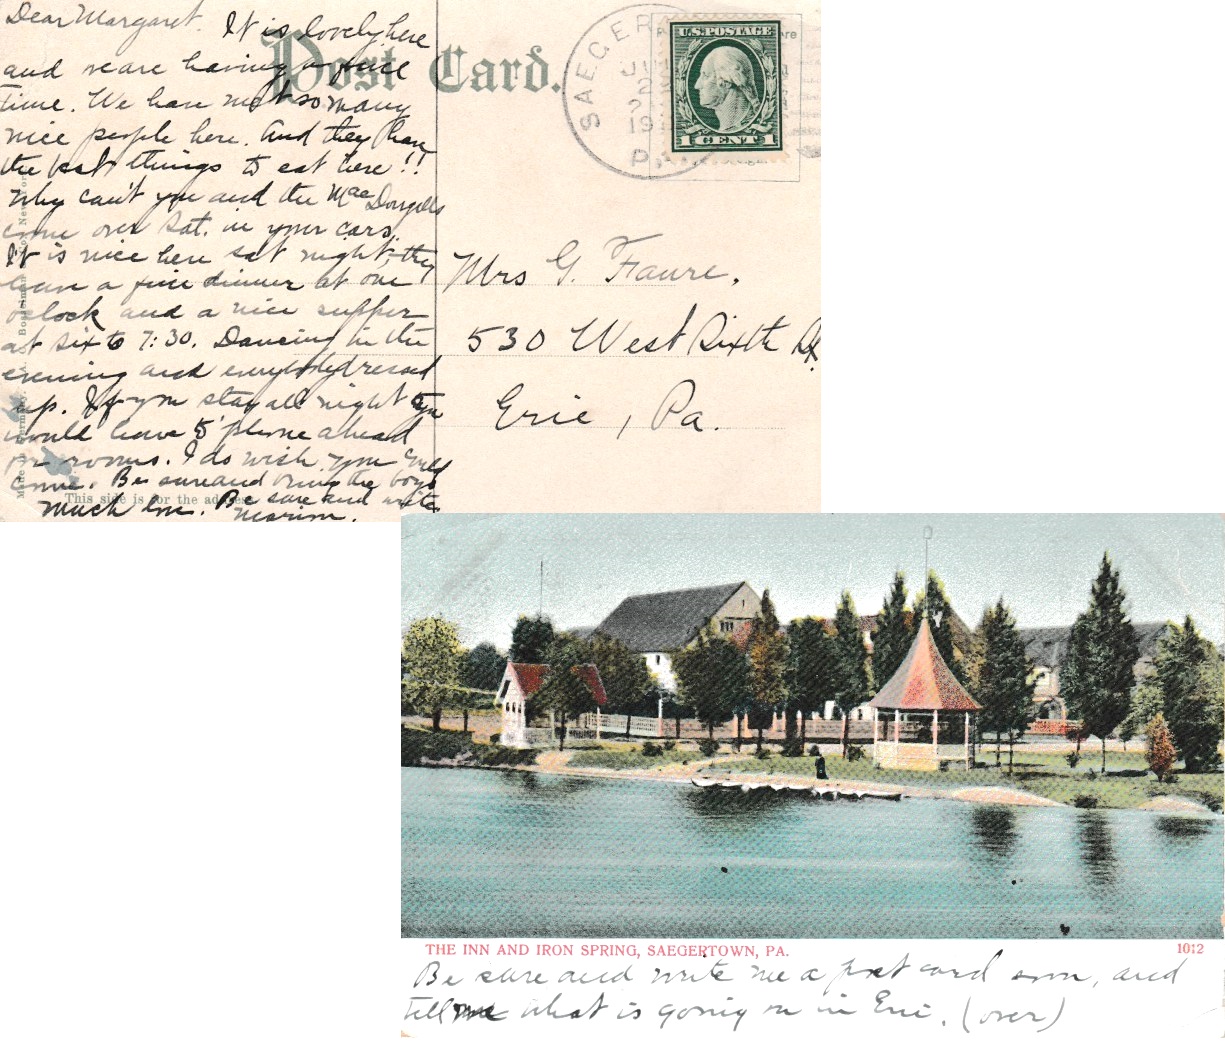 Dear Margaret. It is lovely here
and we are having a fine
time. We have met so many
nice people here. And they have
the best things to eat here!!
Why can't you and the MacDougalls
come over Sat. in your cars.
It is nice here sat night, they
have a fine dinner at one
o'clock and a nice supper
at six to 7:30. Dancing in the
evening and everybody dressed
up. If you stay all night you
would have to 'phone ahead
for rooms. I do wish you could
come. Be sure and bring the boys
Much love. Be sure and write
Marion.
Post Card.
Made in Germany.
New York
This side is for the address
SAEGER
PA.
U.S. POSTAGE
1 CENT 1
Mrs G. Faure.
530 West Sixth St
Erie, Pa.
THE INN AND IRON SPRING, SAEGERTOWN, PA.
1012
Be sure and write me a post card soon, and
tell me what is going on in Erie. (over)